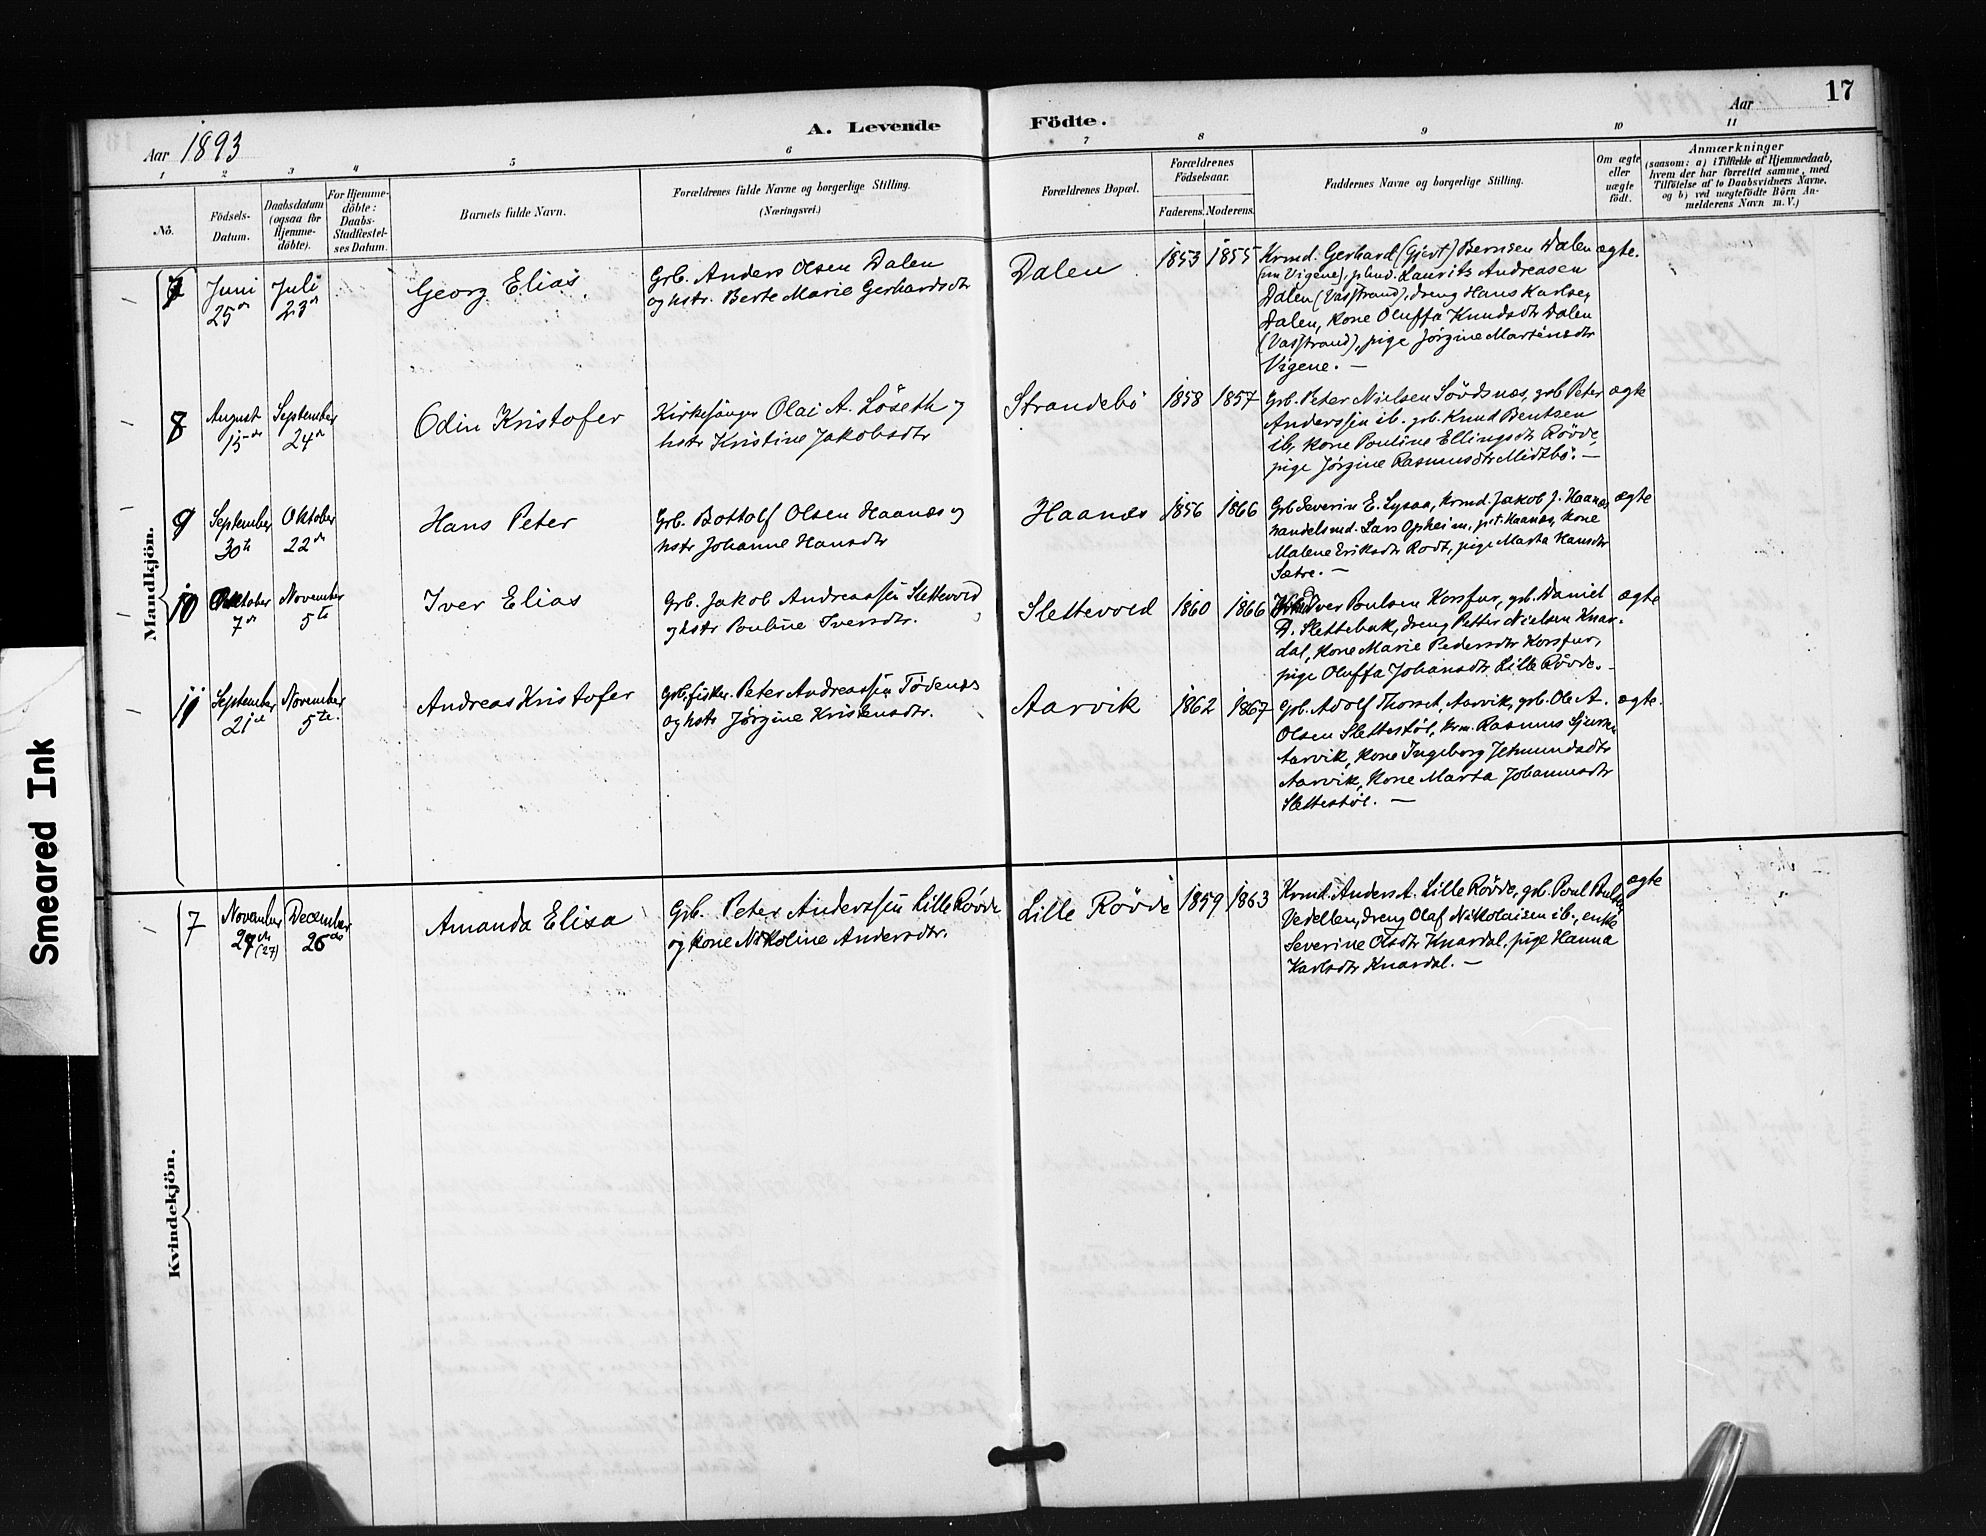 17
Aar 1893
A. Levende Födte.
Aar
1 2 3 4 5 6 7 8 9 10 11
No.
Födsels-
Datum.
Daabsdatum
(ogsaa för
Hjemme-
döbte).
For Hjemme-
döbte:
Daabs-
Stadfæstel-
ses Datum.
Barnets fulde Navn.
Forældrenes fulde Navne og borgerlige Stilling.
(Næringsvei.)
Forældrenes Bopæl.
Forældrenes
Födselsaar.
Faderens. Moderens.
Faddernes Navne og borgerlige Stilling.
Om ægte
eller
uægte
födt.
Anmærkninger
(saasom: a) i Tilfælde af Hjemmedaab,
hvem der har forrettet samme, med
Tilföielse af to Daabsvidners Navne,
og b) ved uægtefödte Börn An-
melderens Navn m. V.)
Mandkjön.
7
Juni
25de
Juli
23de
Georg Elias
Grb. Anders Olsen Dalen
og hstr. Berte Marie Gerhardsdtr
Dalen
1853 1855
Krmd. Gerhard (Gjert) Bernsen Dalen
(nu Vigene), plmd. Laurits Andreasen
Dalen (Vasstrand), dreng Hans Karlsen
Dalen, kone Oluffa Knudsdtr Dalen
(Vasstrand), pige Jørgine Martensdtr
Vigene. —
ægte.
8
August
15de
September
24de
Odin Kristofer
Kirkesanger Olai A. Löseth og
hstr Kristine Jakobsdtr
Strandebö
1858 1857
Grb. Peter Nielsen Sövdsnæs, grb Peter
Anderssen ib. grb. Knud Bentsen
ib, kone Pouline Ellingsdtr Rövde,
pige Jørgine Rasmusdtr Midtbö. —
ægte
9
September
30te
Oktober
22de
Hans Peter
Grb. Bottolf Olsen Haanæs og
hstr Johanne Hansdtr
Haanæs
1856 1866
Grb Severin E. Lysaa, krmd. Jakob J. Haanæs
handelsmd. Lars Opheim, p.t. Haanæs, kone
Malene Eriksdtr Rodt, pige Marta Hansdtr
Sætre. —
ægte
10
Oktober
7de
November
5te
Iver Elias
Grb. Jakob Andreassen Slettevold
og hstr Pouline Iversdtr.
Slettevold
1860 1866
Iver Poulsen Korsfur, grb. Daniel
D. Slettebak, dreng Petter Nielsen Knar-
dal, kone Marie Pedersdtr Korsfur,
pige Oluffa Johansdtr Lille Rövde. —
ægte
11
September
21de
November
5te.
Andreas Kristofer
Grb. fisker Peter Andreassen Tödenes
og hstr Jørgine Kristensdtr.
Aarvik
1862 1867
Grb. Adolf Thorset, Aarvik, grb. Ole A.
Olsen Slettestöl, krm. Rasmus
Aarvik, kone Ingeborg Jetmundsdtr
Aarvik, kone Marta Johannesdtr
Slettestöl. —
ægte.
Kvindekjön.
7
November
27de (27)
December
26de
Amanda Elisa
Grb. Peter Anderssen Lille Rövde
og kone Nikoline Andersdtr.
Lille Rövde
1859 1863
Krmd. Anders A. Lille Rövde, grb. Poul
Vedellen, dreng Olaf Nikolaisen ib., enke
Severine Olsdtr Knardal, pige Hanna
Karlsdtr Knardal. —
ægte
Smeared Ink